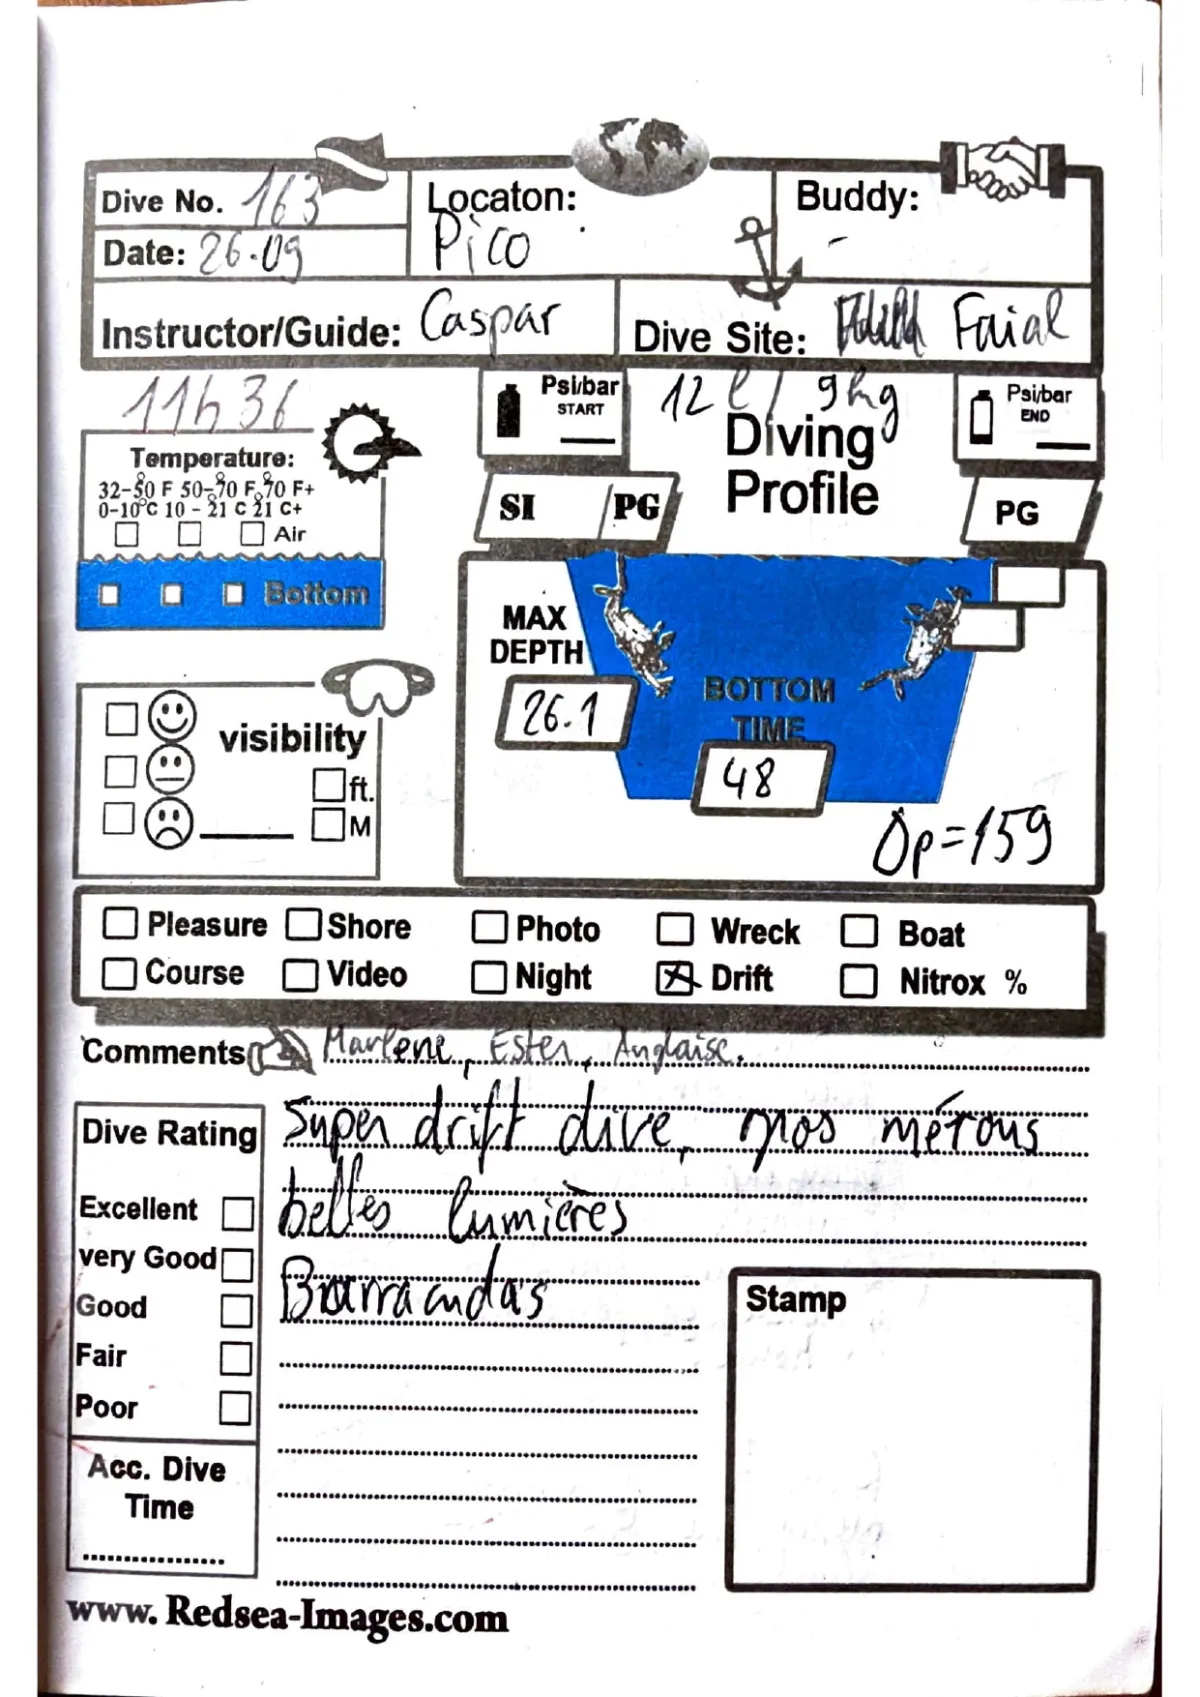 Dive No. 163
Locaton:
Buddy:
Pico
-
Date: 26.09
Instructor/Guide: Caspar
Dive Site: Faial
11h36
Psi/bar
START
12 l / 9kg
Psi/bar
END
Diving
Profile
Temperature:
32-50 F 50-70 F 70 F+
0-10°C 10 - 21 C 21 C+
Air
Bottom
SI / PG
PG
MAX
DEPTH
26.1
BOTTOM
TIME
48
Δp=159
visibility
ft.
M
Pleasure Shore Photo Wreck Boat
Course Video Night Drift Nitrox %
Comments Marlène, Ester, Anglaise.
Super drift dive, gros mérous
belles lumières
Barracudas
Dive Rating
Excellent
very Good
Good
Fair
Poor
Acc. Dive
Time
Stamp
www. Redsea-Images.com